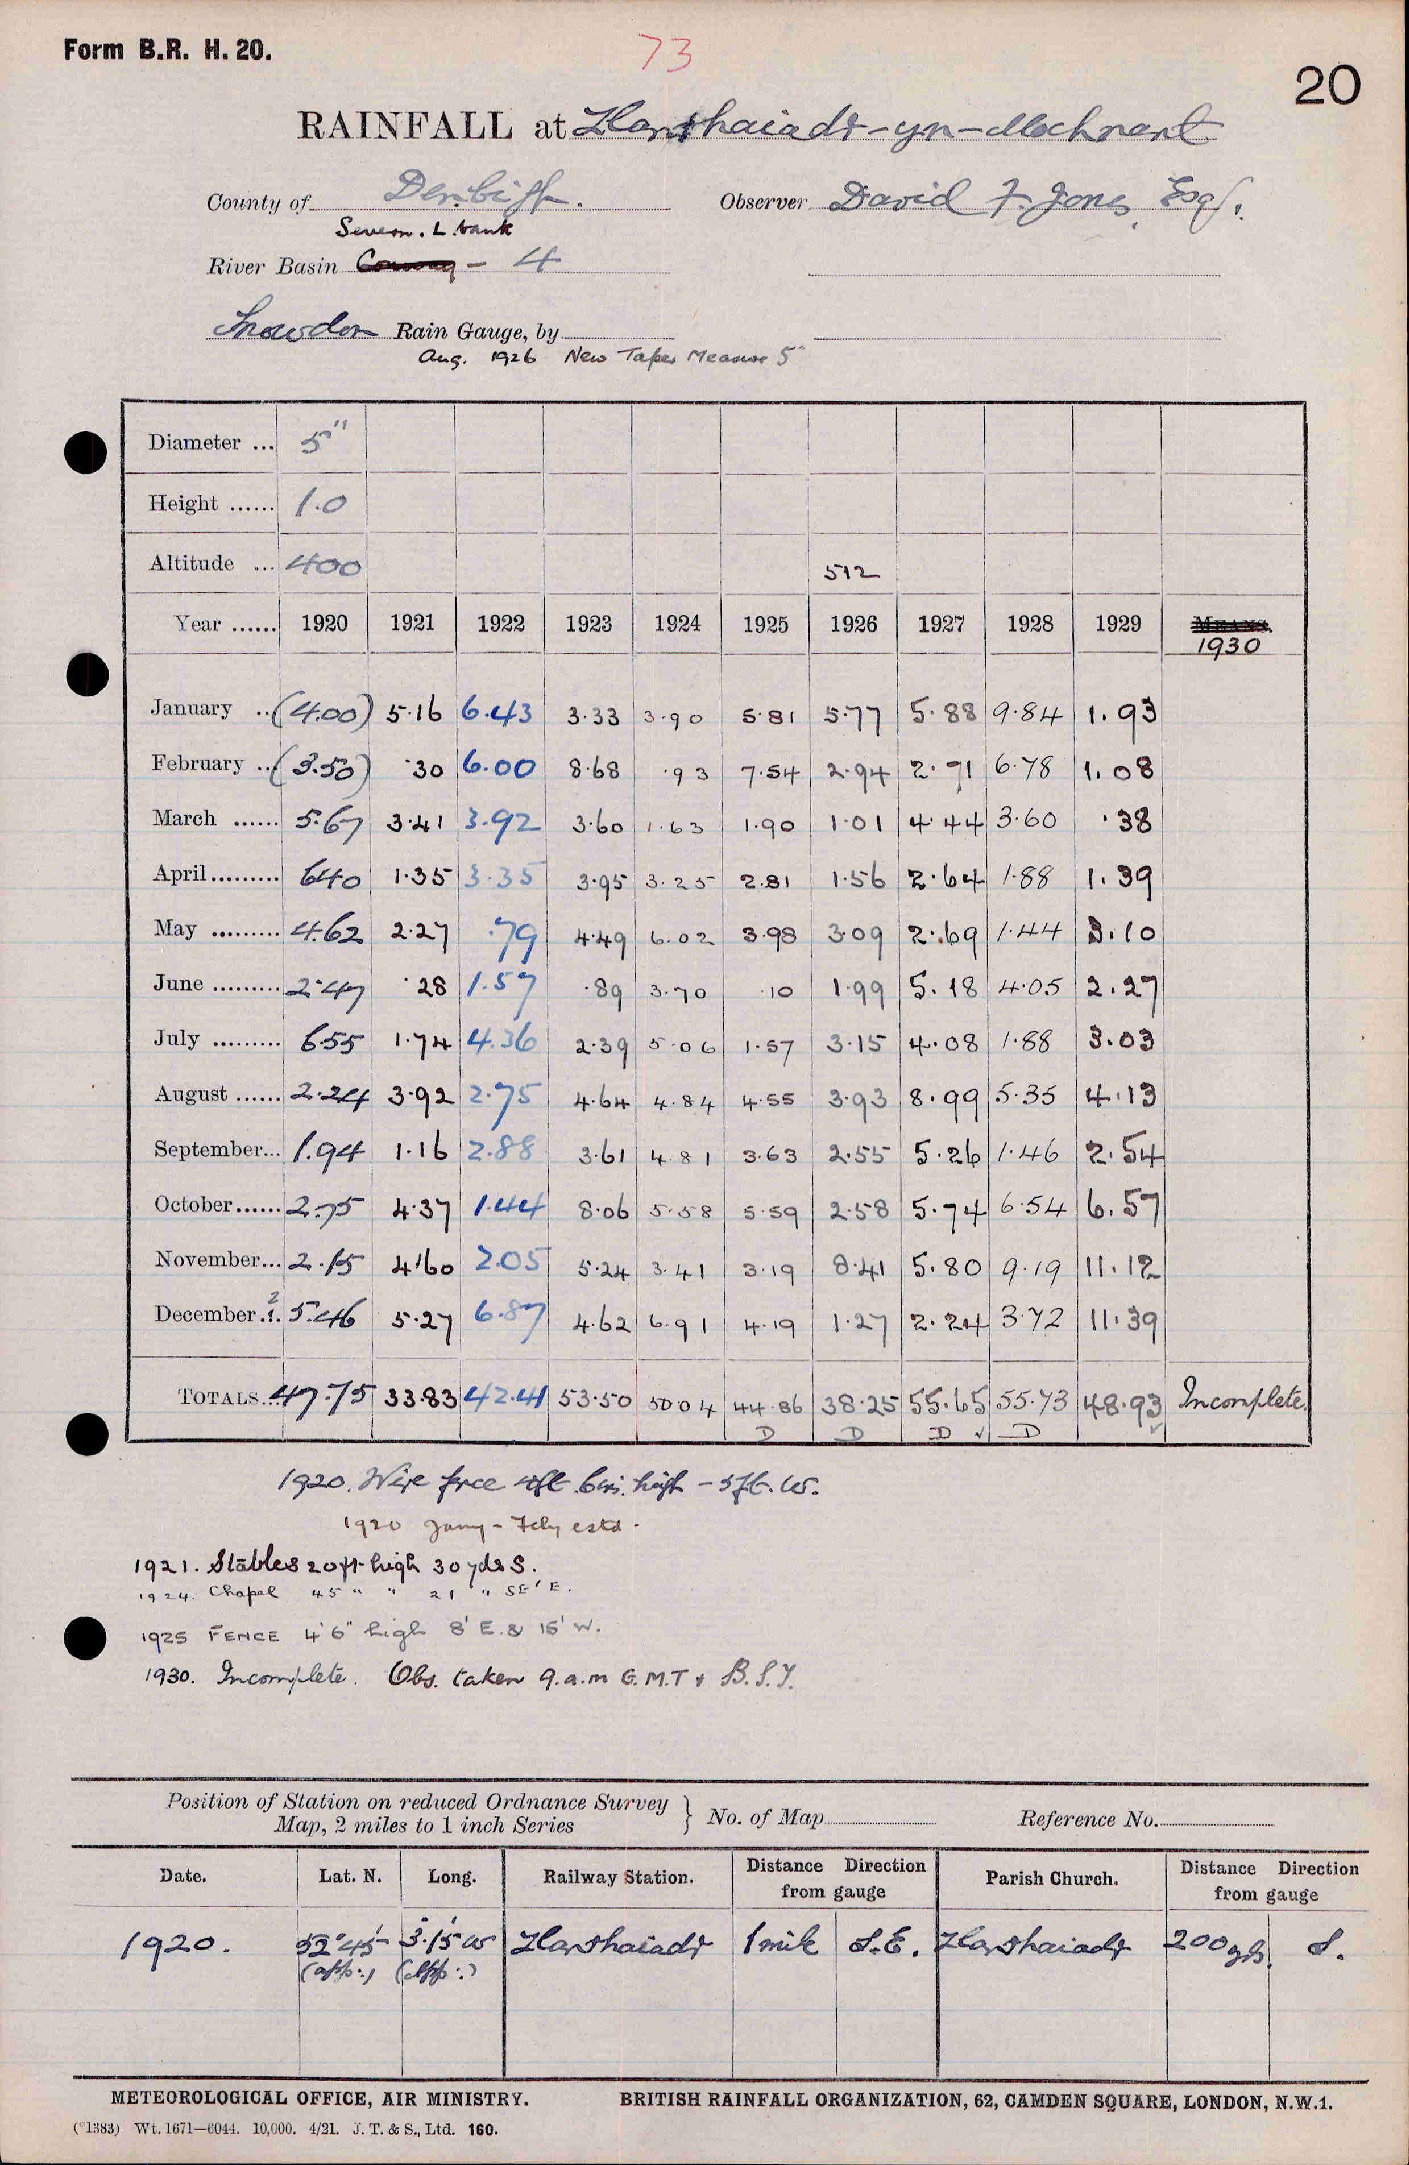 Form B.R. H. 20.
73
20
RAINFALL at Llanrhaiadr-yn-Mochnant
County of Denbigh. Observer David F. Jones, Esq.
Severn. L bank
River Basin Conway - 4
Snowdon Rain Gauge, by
Aug. 1926 New Taper Measure 5"
Diameter ... 5"
Height ...... 1.0
Altitude ... 400 512
Year ...... 1920 1921 1922 1923 1924 1925 1926 1927 1928 1929 MEANS.
1930
January .. (4.00) 5.16 6.43 3.33 3.90 5.81 5.77 5.88 9.84 1.93
February .. (3.50) .30 6.00 8.68 .93 7.54 2.94 2.71 6.78 1.08
March ...... 5.67 3.41 3.92 3.60 1.63 1.90 1.01 4.44 3.60 .38
April ......... 6.40 1.35 3.35 3.95 3.25 2.81 1.56 2.64 1.88 1.39
May ......... 4.62 2.27 .79 4.49 6.02 3.98 3.09 2.69 1.44 3.10
June ......... 2.47 .28 1.57 .89 3.70 .10 1.99 5.18 4.05 2.27
July ......... 6.55 1.74 4.36 2.39 5.06 1.57 3.15 4.08 1.88 3.03
August ...... 2.24 3.92 2.75 4.64 4.84 4.55 3.93 8.99 5.35 4.13
September... 1.94 1.16 2.88 3.61 4.81 3.63 2.55 5.26 1.46 2.54
October...... 2.75 4.37 1.44 8.06 5.58 5.59 2.58 5.74 6.54 6.57
November... 2.15 4.60 2.05 5.24 3.41 3.19 8.41 5.80 9.19 11.12
December .. 5.46 5.27 6.87 4.62 6.91 4.19 1.27 2.24 3.72 11.39
TOTALS... 47.75 33.83 42.41 53.50 50 04 44.86 38.25 55.65 55.73 48.93 Incomplete.
D D D ✓ D ✓
1920. Wire fence 4ft 6in. high - 5ft. W.
1920 Jany - Feby estd.
1921. Stables 20ft high 30 yds S.
1924. Chapel 45 " " 21 " SE'E.
1925 FENCE 4'6" high 8' E. & 15' W.
1930. Incomplete. Obs. taken 9.a.m G.M.T & B.S.T.
Position of Station on reduced Ordnance Survey
Map, 2 miles to 1 inch Series } No. of Map Reference No.
Date. Lat. N. Long. Railway Station. Distance Direction from gauge Parish Church. Distance Direction from gauge
1920. 52°45' 3°.15'W Llanrhaiadr 1 mile S.E. Llanrhaiadr 200 yds. S.
(app:) (app:)
METEOROLOGICAL OFFICE, AIR MINISTRY. BRITISH RAINFALL ORGANIZATION, 62, CAMDEN SQUARE, LONDON, N.W.1.
(*1383) Wt. 1671—6044. 10,000. 4/21. J. T. & S., Ltd. 160.